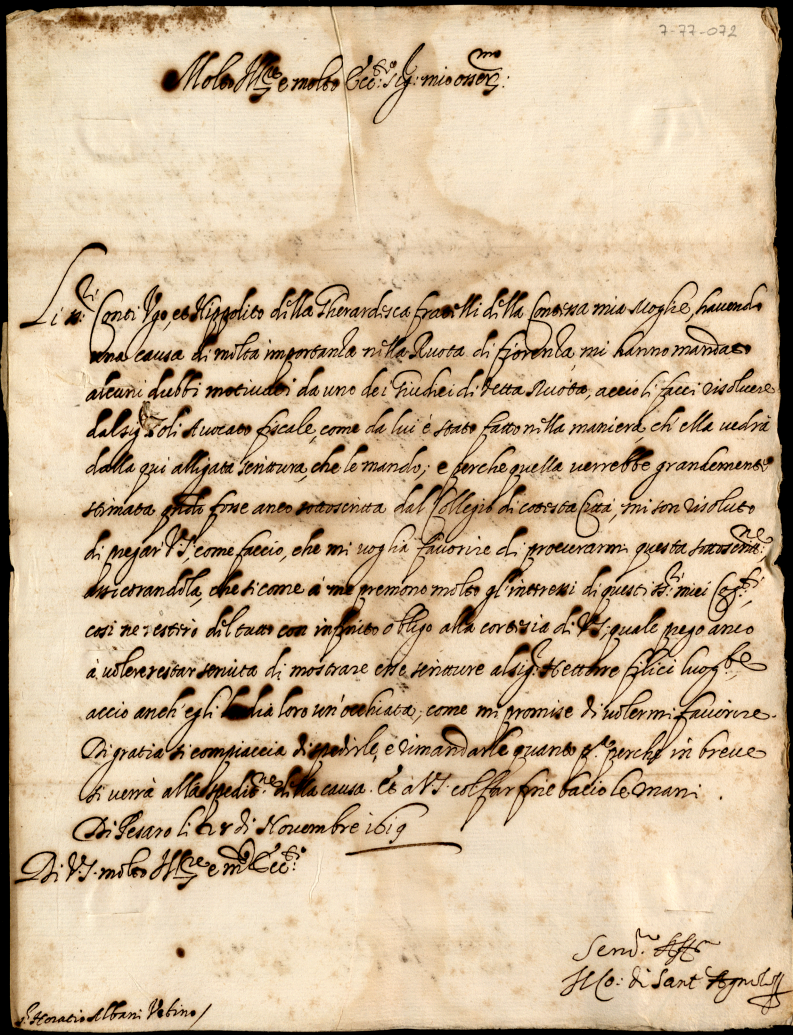 7-77-072
Molto Ill.re e molto Ecc.te Sig.r mio oss.mo:
Li SS.ri Conti Ugo, et Hippolito della Gherardesca fratelli della Contessa mia Moglie, havendo
una causa di molta importanza nella Ruota di fiorenza, mi hanno mandato
alcuni dubbi motivati da uno dei Giudici di detta Ruota, acciò li facci risolvere
dal sig.r Toli Avocato fiscale, come da lui è stato fatto nella maniera, ch'ella vedrà
dalla qui alligata scrittura, che le mando; e perche quella verrebbe grandemente
stimata q.do fosse anco sottoscritta dal Collegio di cotesta Città, mi son risoluto
di pregar V.S. come faccio, che mi voglia favorire di procurarmi questa sottoscritt.ne:
assicurandola, che si come à me premono molto gl'interessi di questi SS.ri miei Cog.ti,
cosi ne resterò del tutto con infinito obligo alla cortesia di V.S. quale prego anco
à voler restar servita di mostrare esse scritture al sig.r Hettorre felici luog.te,
acciò anch'egli dia loro un'occhiata, come mi promise di volermi favorire.
Di gratia si compiaccia di spedirle, e rimandarle quanto p.a perche in breve
si verrà alla spedit.ne della causa. Et a V.S. col far fine bacio le mani.
Di Pesaro li 28 di Novembre 1619
Di V.S. molto Ill.re e m.to Ecc.te
Serv.re Aff.mo
Il Co: di Sant Agnolo
S.r Horatio Albani Urbino /